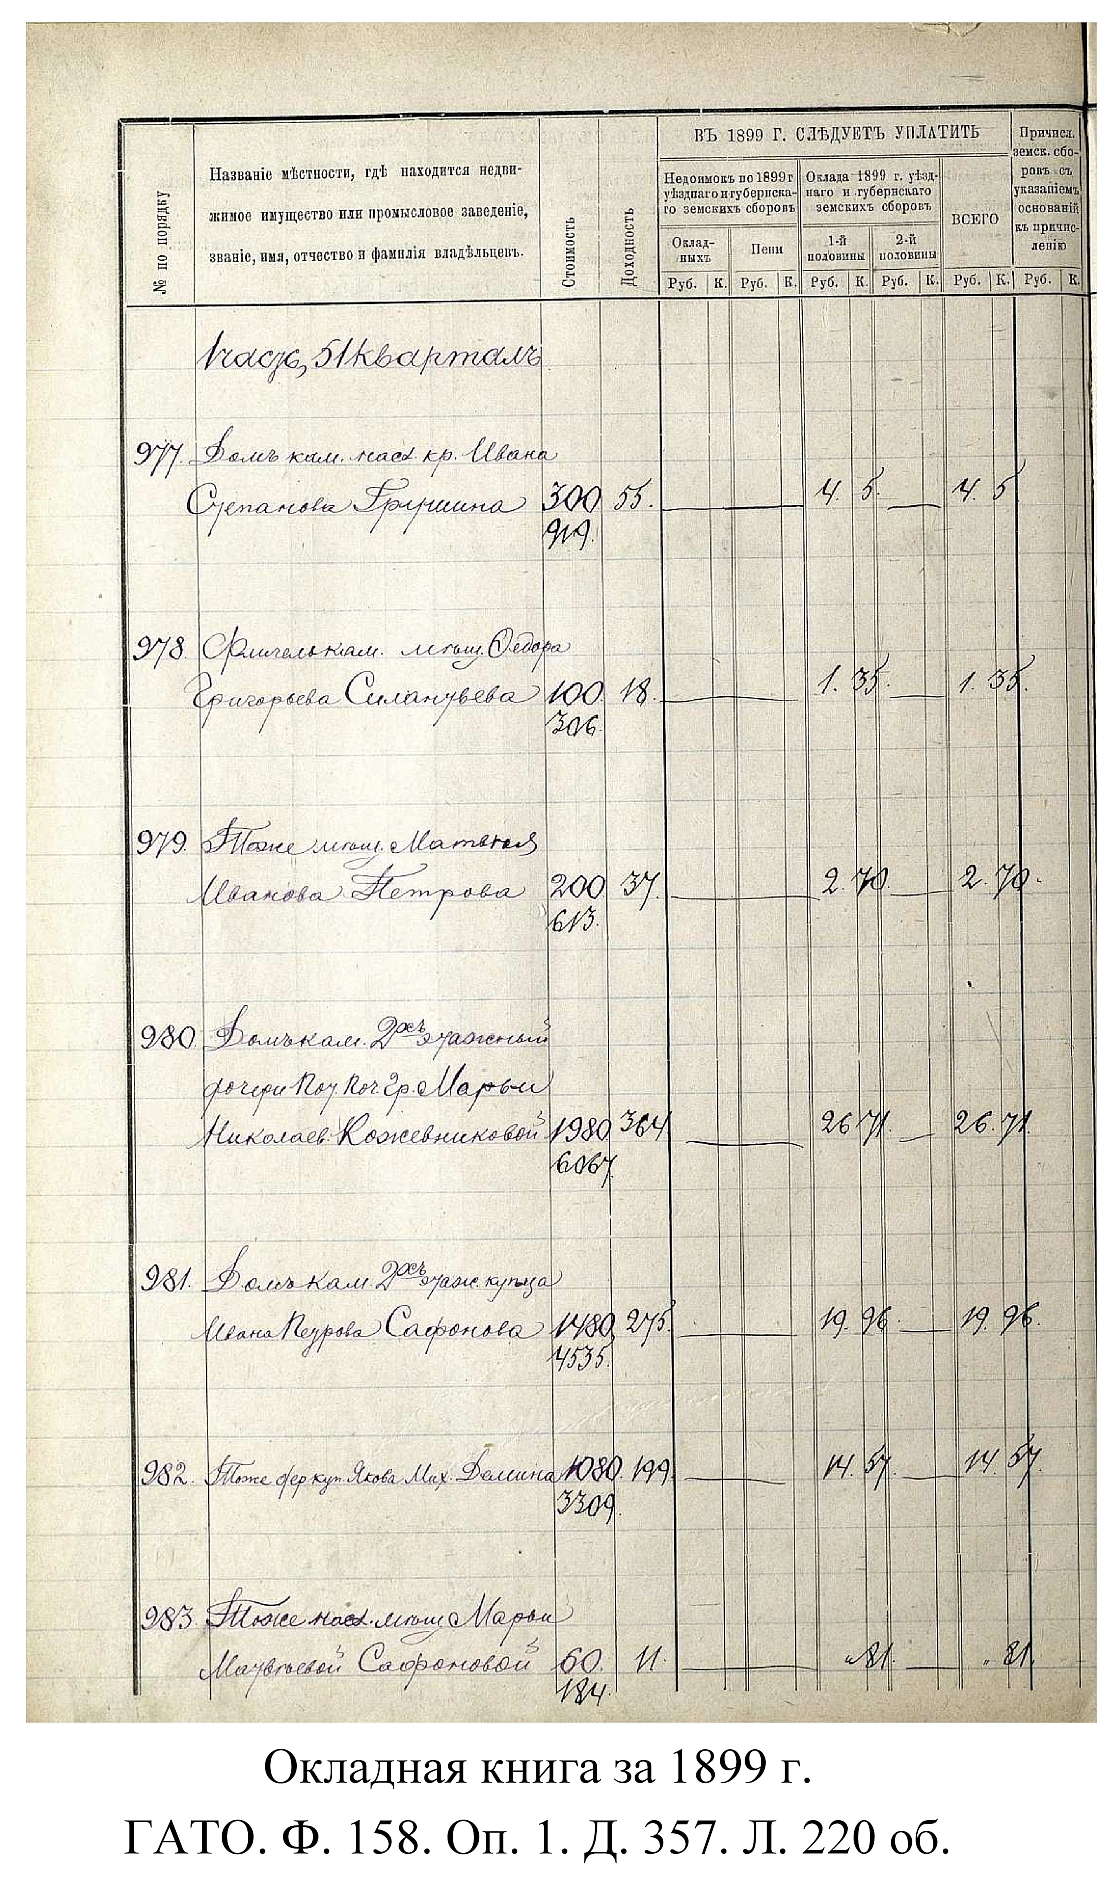 № по порядку
Названіе мѣстности, гдѣ находится недви-
жимое имущество или промысловое заведеніе,
званіе, имя, отчество и фамилія владѣльцевъ.
Стоимость
Доходность
ВЪ 1899 Г. СЛѢДУЕТЪ УПЛАТИТЬ
Недоимокъ по 1899 г
уѣзднаго и губернска-
го земскихъ сборовъ
Оклад-
ныхъ
Пени
Оклада 1899 г. уѣзд-
наго и губернскаго
земскихъ сборовъ
1-й
половины
2-й
половины
ВСЕГО
Причисл.
земск. сбо-
ровъ съ
указаніемъ
основаній
къ причис-
ленію
Руб. К. Руб. К. Руб. К. Руб. К. Руб. К. Руб. К.
1 часть, 51 кварталъ
977. Домъ кам. насл. кр. Ивана
Степанова Грушина 300 55. 4. 5. 4. 5
919.
978. Флигель кам. мѣщ. Ѳедора
Григорьева Силантьева 100 18. 1. 35. 1. 35.
306.
979. Тоже мѣщ. Матвѣя
Иванова Петрова 200 37. 2. 70. 2. 70.
613.
980. Домъ кам. 2хъ этажный
дочери Пот. Поч. Гр. Марьи
Николаев. Кожевниковой 1980 364 26 71. 26. 71.
6067.
981. Домъ кам 2хъ этаж купца
Ивана Петрова Сафонова 1480 275. 19. 96. 19. 96.
4535.
982. Тоже куп. Якова Мих. Демина 1080. 199. 14. 57. 14 57.
3309.
983. Тоже насл. мѣщ Марьи
Матвѣевой Сафоновой 60. 11. „ 81. „ 81.
184.
Окладная книга за 1899 г.
ГАТО. Ф. 158. Оп. 1. Д. 357. Л. 220 об.